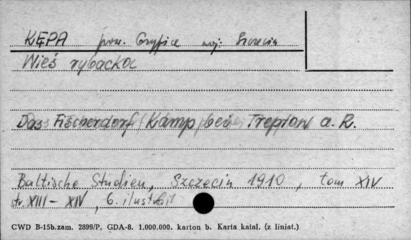 KĘPA pow. Gryfice woj. Szczecin
Wieś rybacka
Das Fischerdorf Kamp bei Treptow a. R.
Baltische Studien, Szczecin 1910, tom XIV
str. XIII - XIV, 6. ilustracji
CWD B-15b.zam. 2899/P, GDA-8. 1.000.000. karton b. Karta katal. (z liniat.)